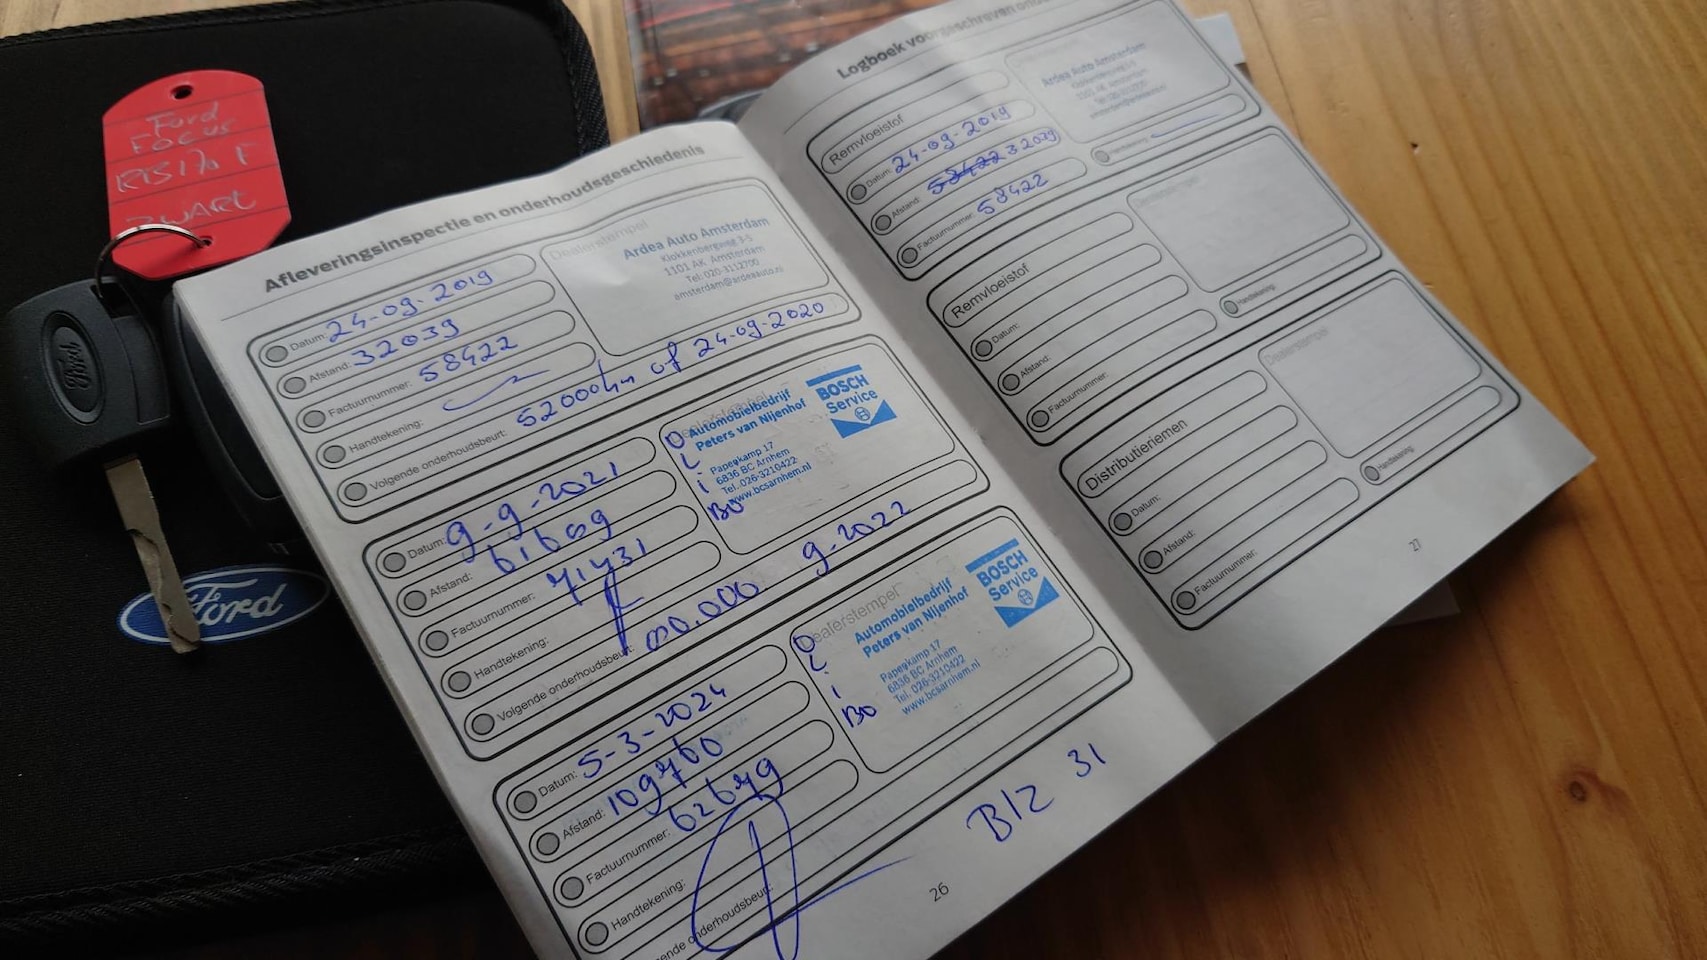 Ford
Focus
ZWART
Ford
Ford
Afleveringsinspectie en onderhoudsgeschiedenis
Datum: 24-09-2019
Afstand: 32039
Factuurnummer: 58422
Handtekening:
Volgende onderhoudsbeurt: 52000km of 24-09-2020
Dealerstempel
Ardea Auto Amsterdam
Klokkenbergweg 3-5
1101 AK Amsterdam
Tel: 020-3112700
amsterdam@ardeaauto.nl
Datum: 9-9-2021
Afstand: 61609
Factuurnummer: 71431
Handtekening:
Volgende onderhoudsbeurt: 9-2022
Automobielbedrijf
Peters van Nijenhof
Papegkamp 17
6836 BC Arnhem
Tel. 026-3210422
www.bcsarnhem.nl
BOSCH
Service
Datum: 5-3-2024
Afstand: 109760
Factuurnummer: 62679
Handtekening:
onderhoudsbeurt:
Dealerstempel
Automobielbedrijf
Peters van Nijenhof
Papegkamp 17
6836 BC Arnhem
Tel. 026-3210422
www.bcsarnhem.nl
BOSCH
Service
Blz 31
26
Logboek voorgeschreven
Remvloeistof
Datum: 24-09-2019
Afstand: 58422 32039
Factuurnummer: 58422
Ardea Auto Amsterdam
Klokkenbergweg 3-5
1101 AK Amsterdam
Handtekening:
Remvloeistof
Datum:
Afstand:
Factuurnummer:
Dealerstempel
Handtekening:
Distributieriemen
Datum:
Afstand:
Factuurnummer:
Dealerstempel
Handtekening:
27